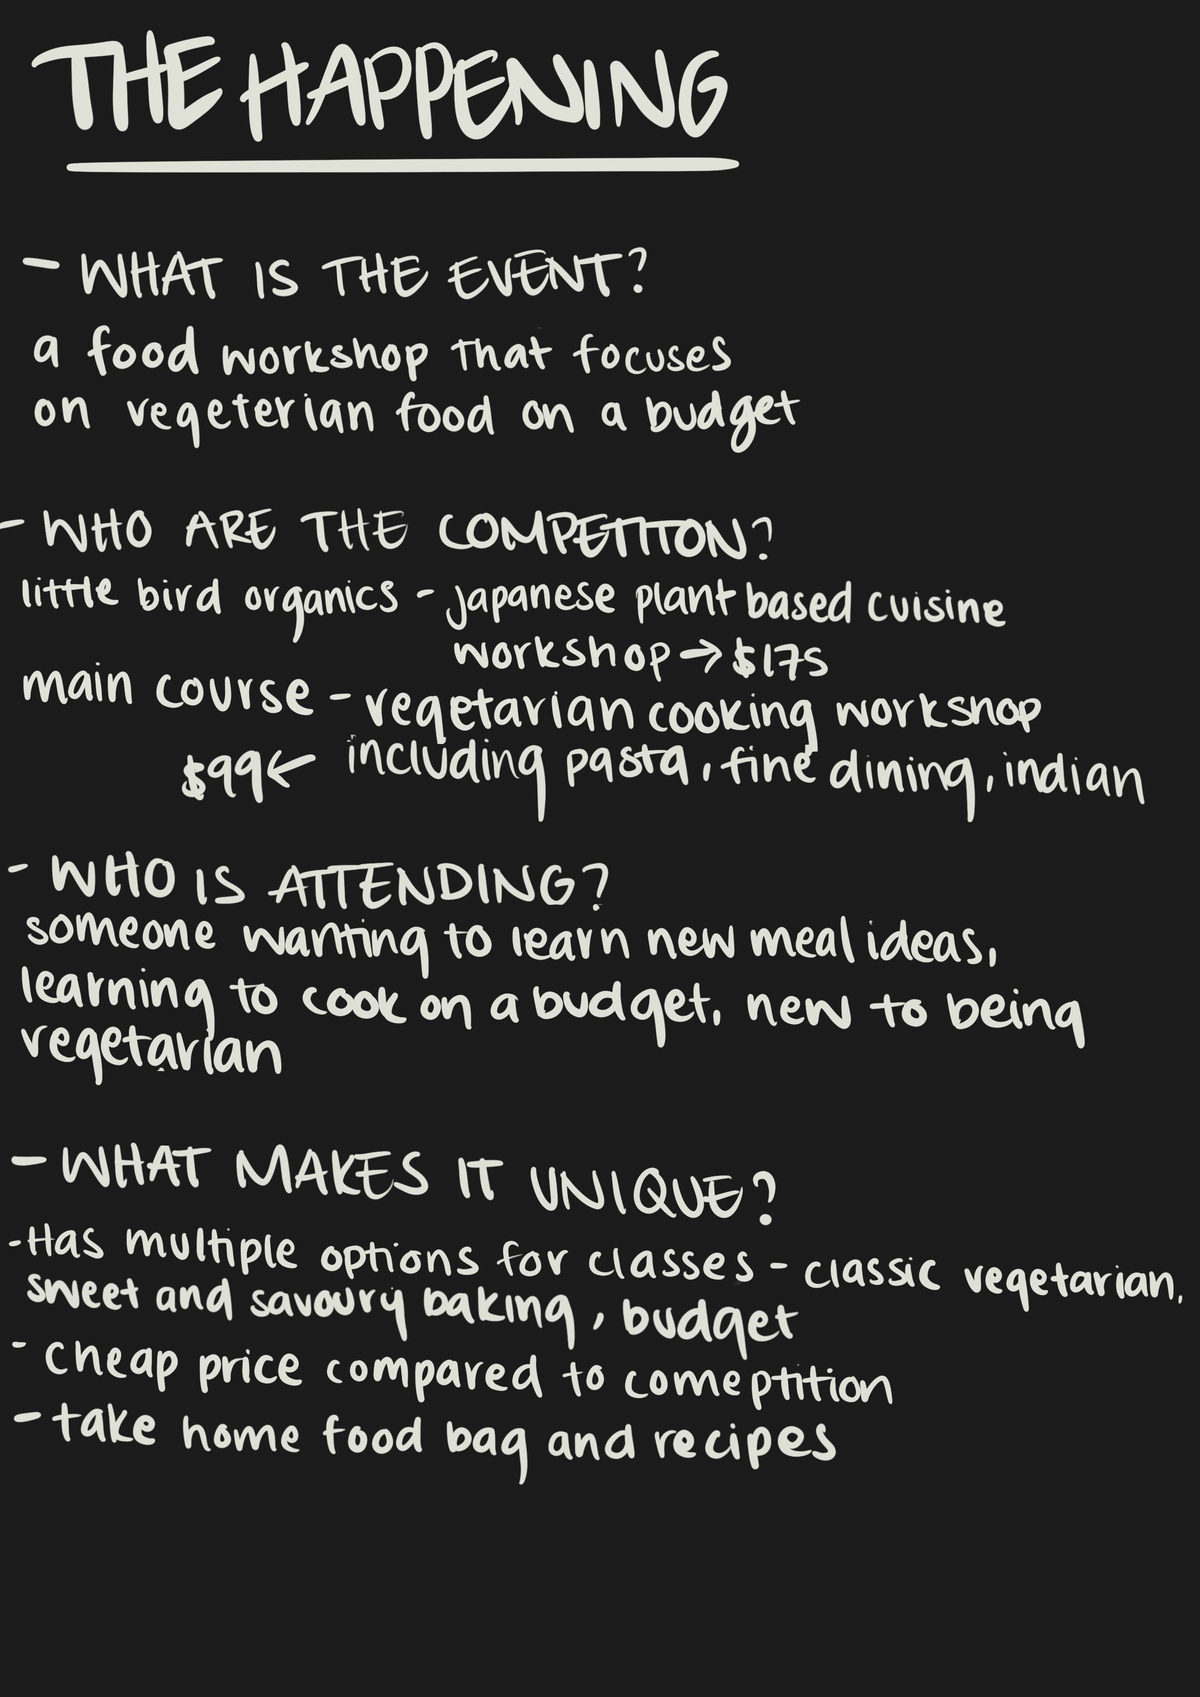 THE HAPPENING
- WHAT IS THE EVENT?
a food workshop that focuses
on vegeterian food on a budget
- WHO ARE THE COMPETITON?
little bird organics - japanese plant based cuisine
workshop → $175
main course - vegetarian cooking workshop
$99 ← including pasta, fine dining, indian
- WHO IS ATTENDING?
someone wanting to learn new meal ideas,
learning to cook on a budget, new to being
vegetarian
- WHAT MAKES IT UNIQUE?
- Has multiple options for classes - classic vegetarian,
sweet and savoury baking, budget
- cheap price compared to comeptition
- take home food bag and recipes